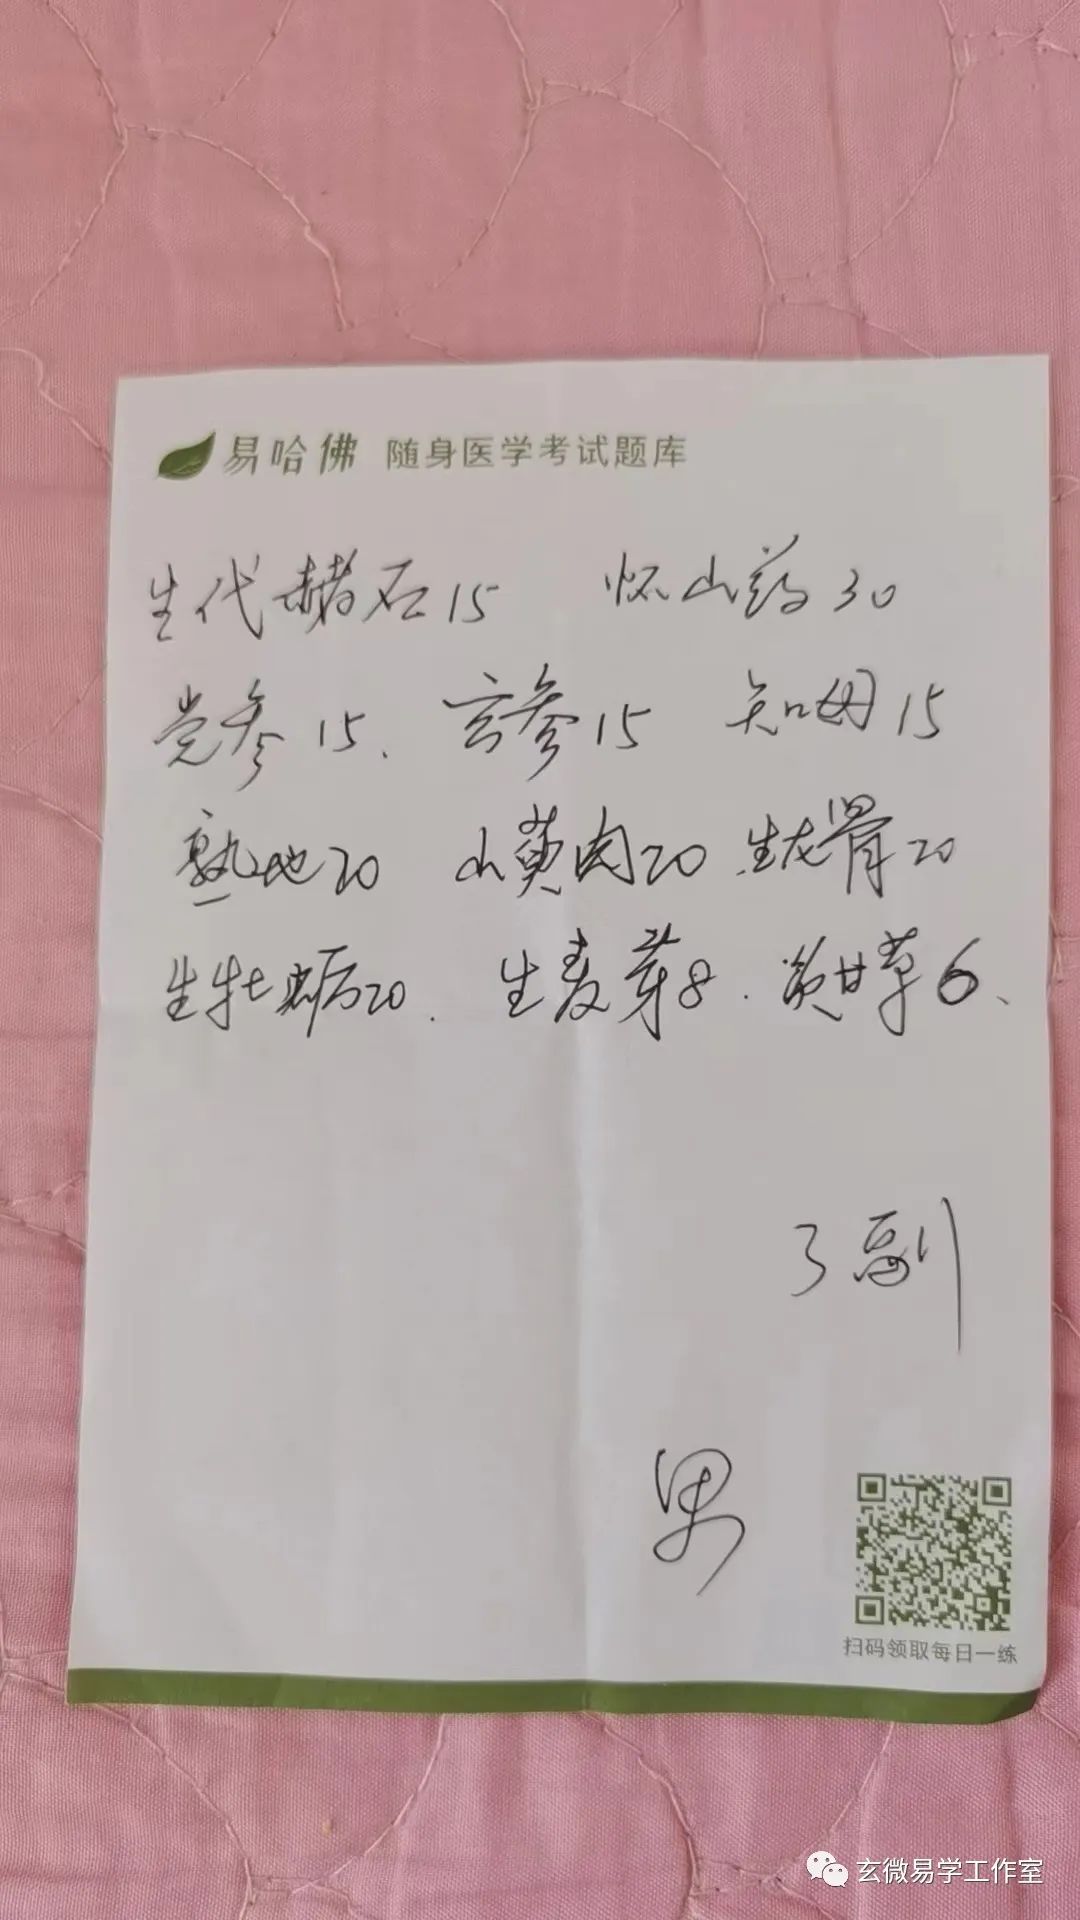 易哈佛 随身医学考试题库
生代赭石15 怀山药30
党参15、玄参15 知母15
熟地20 山萸肉20 生龙骨20
生牡蛎20. 生麦芽8. 炙甘草6、
3副
男
扫码领取每日一练
玄微易学工作室